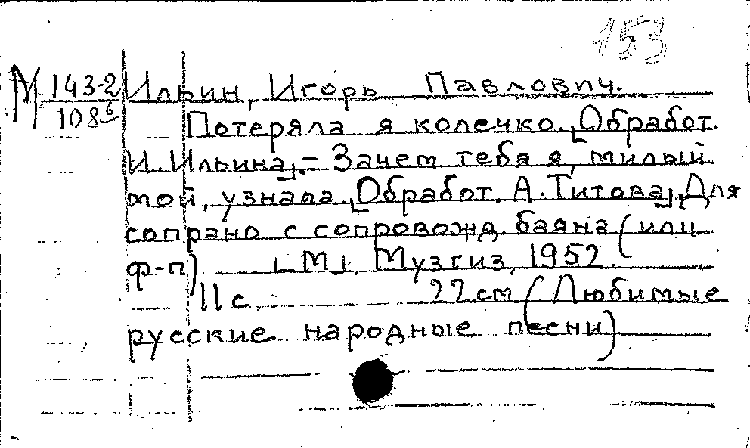 153
М 143-2 Ильин, Игорь Павлович.
108б Потеряла я колечко. [Обработ.
И. Ильина]. – Зачем тебя я, милый
мой, узнала. [Обработ. А. Титова]. Для
сопрано с сопровожд. баяна (или
ф-п) [М], Музгиз, 1952.
11 с. 22 см (Любимые
русские народные песни)